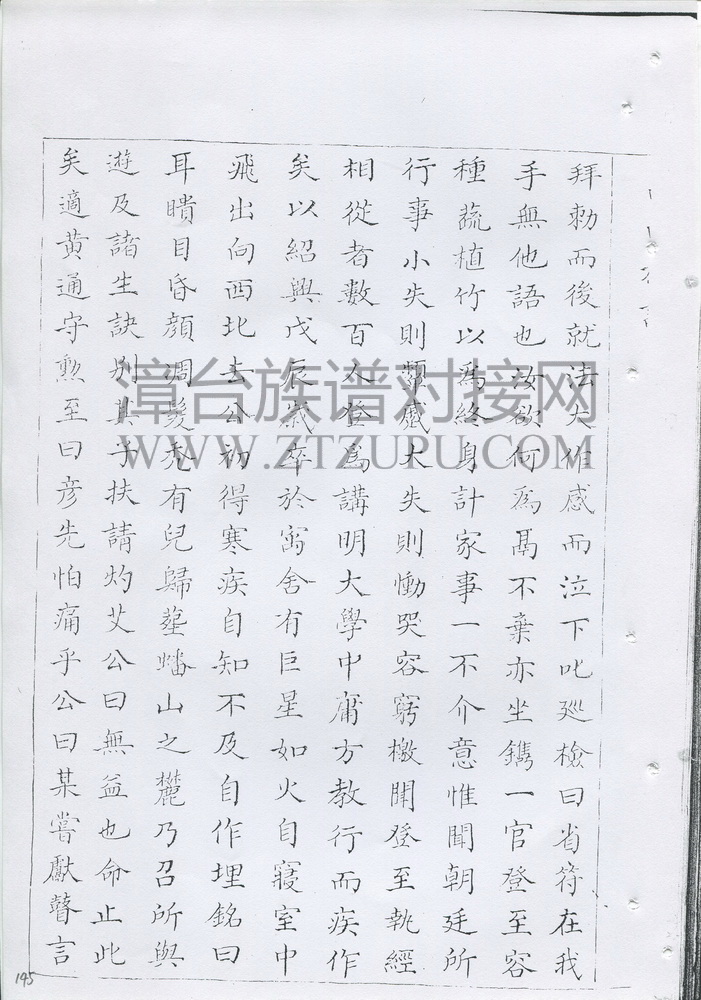 拜勅而後就法大作感而泣下叱廵檢曰省符在我
手無他語也汝欲何爲咼不棄亦坐鐫一官登至容
種蔬植竹以爲終身計家事一不介意惟聞朝廷所
行事小失則顰蹙大失則慟哭容窮檄聞登至執經
相從者數百人登爲講明大學中庸方教行而疾作
矣以紹興戊辰歲卒於寓舍有巨星如火自寢室中
飛出向西北去公初得寒疾自知不及自作埋銘曰
耳瞶目昏顔凋髮禿有兒歸塟蟠山之麓乃召所與
遊及諸生訣别其子扶請灼艾公曰無益也命止此
矣適黄通守勲至曰彦先怕痛乎公曰某嘗獻瞽言
漳台族谱对接网
WWW.ZTZUPU.COM
145